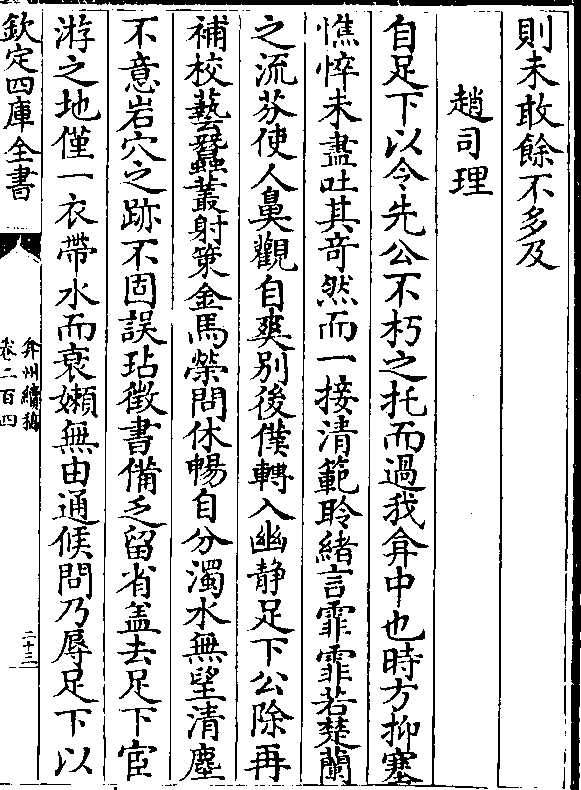 則未敢餘不多及
趙司理
自足下以令先公不朽之托而過我弇中也時方抑塞
憔悴未盡吐其奇然而一接清範聆緒言霏霏若楚蘭
之流芬使人鼻觀自爽別後僕轉入幽静足下公除再
補校藝蠶叢射策金馬榮問休暢自分濁水無望清塵
不意岩穴之跡不固誤玷徵書備乏留省盖去足下宦
游之地僅一衣帶水而衰嬾無由通候問乃辱足下以
欽定四庫全書
弇州續稿
卷二百四
二十三